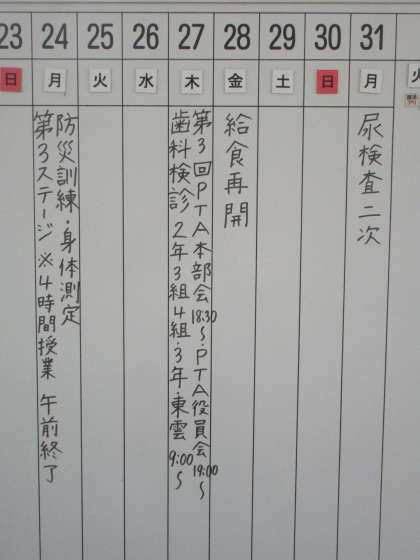 23 24 25 26 27 28 29 30 31
日 月 火 水 木 金 土 日 月 火
防災訓練・身体測定
第3ステージ ※4時間授業 午前終了
第3回PTA本部会 18:30〜・PTA役員会 19:00〜
歯科検診 2年3組4組・3年・東雲 9:00〜
給食再開
尿検査二次